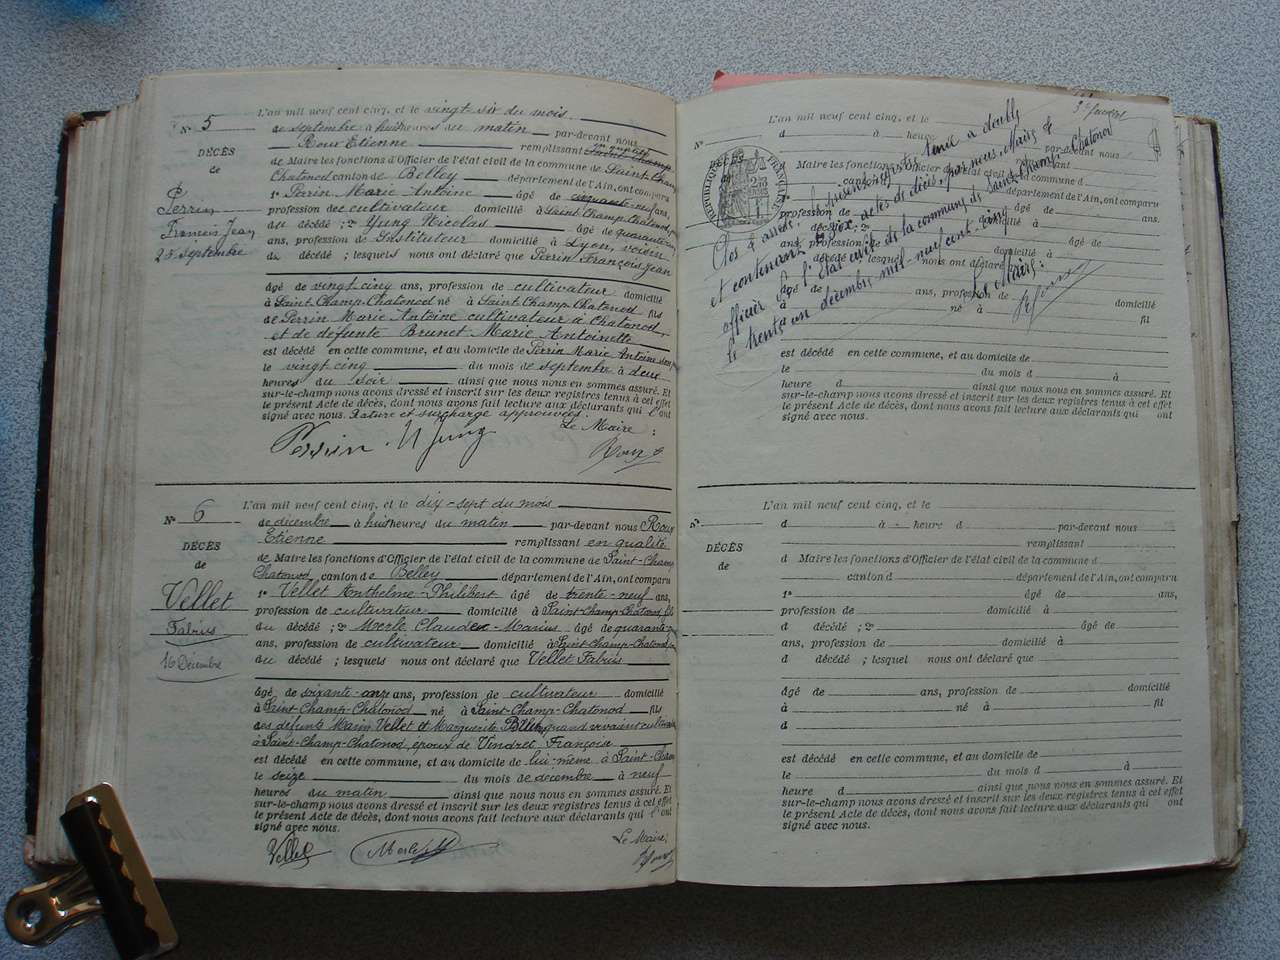 N° 5
DÉCÈS
de
Perrin
Francis Jean
25 septembre
L'an mil neuf cent cinq, et le vingt six du mois
de septembre à huit heures du matin par-devant nous
Roux Etienne remplissant en qualité
de Maire les fonctions d'Officier de l'état civil de la commune de Saint-Champ
Chatonod canton de Belley département de l'Ain, ont comparu
1° Perrin Marie Antoine âgé de cinquante-neuf ans,
profession de cultivateur domicilié à Saint Champ Chatonod,
du décédé ; 2° Yung Nicolas âgé de quarante
ans, profession de Instituteur domicilié à Lyon, voisin
du décédé ; lesquels nous ont déclaré que Perrin François Jean
âgé de vingt cinq ans, profession de cultivateur domicilié
à Saint-Champ-Chatonod né à Saint-Champ-Chatonod fils
de Perrin Marie Antoine cultivateur à Chatonod,
et de défunte Brunet Marie Antoinette
est décédé en cette commune, et au domicile de Perrin Marie Antoine son
le vingt cinq du mois de septembre à deux
heures du Soir ainsi que nous nous en sommes assuré. Et
sur-le-champ nous avons dressé et inscrit sur les deux registres tenus à cet effet
le présent Acte de décès, dont nous avons fait lecture aux déclarants qui l'ont
signé avec nous. Rature et surcharge approuvées.
Le Maire :
Perrin N Yung Roux
N° 6
DÉCÈS
de
Vellet
Fabius
16 Décembre
L'an mil neuf cent cinq, et le dix-sept du mois
de décembre à huit heures du matin par-devant nous Roux
Etienne remplissant en qualité
de Maire les fonctions d'Officier de l'état civil de la commune de Saint-Champ
Chatonod canton de Belley département de l'Ain, ont comparu
1° Vellet Anthelme-Philibert âgé de trente-neuf ans,
profession de cultivateur domicilié à Saint-Champ-Chatonod, fils
du décédé ; 2° Merle Claude-Marius âgé de quarante
ans, profession de cultivateur domicilié à Saint-Champ-Chatonod,
du décédé ; lesquels nous ont déclaré que Vellet Fabius
âgé de soixante ans, profession de cultivateur domicilié
à Saint-Champ-Chatonod né à Saint-Champ-Chatonod fils
des défunts Marin Vellet et Marguerite quand vivaient
à Saint-Champ-Chatonod, époux de Vindret Françoise
est décédé en cette commune, et au domicile de lui-même à Saint-Champ
le seize du mois de décembre à neuf
heures du matin ainsi que nous nous en sommes assuré. Et
sur-le-champ nous avons dressé et inscrit sur les deux registres tenus à cet effet
le présent Acte de décès, dont nous avons fait lecture aux déclarants qui l'ont
signé avec nous.
Le Maire,
Vellet Merle M Roux
N°
DÉCÈS
RÉPUBLIQUE FRANÇAISE
L'an mil neuf cent cinq, et le
d à heure
par-devant nous
Maire les fonctions
canton
département de l'Ain, ont comparu
profession de domicilié à
âgé de ans,
d décédé ; 2° âgé de
ans, profession de domicilié à
d décédé ; lesquel nous ont déclaré
âgé de ans, profession de domicilié
à né à fil
d
Clos et arrêté, le présent registre tenu à double
et contenant six actes de décès, par nous, Maire et
officier de l'état civil de la commune de Saint-Champ-Chatonod
le trente un décembre mil-neuf cent-cinq
Le Maire :
est décédé en cette commune, et au domicile de
le du mois d à
heure d ainsi que nous nous en sommes assuré. Et
sur-le-champ nous avons dressé et inscrit sur les deux registres tenus à cet effet
le présent Acte de décès, dont nous avons fait lecture aux déclarants qui ont
signé avec nous.
N°
DÉCÈS
de
L'an mil neuf cent cinq, et le
d à heure d par-devant nous
remplissant
d Maire les fonctions d'Officier de l'état civil de la commune d
canton d département de l'Ain, ont comparu
1° âgé de ans,
profession de domicilié à
d décédé ; 2° âgé de
ans, profession de domicilié à
d décédé ; lesquel nous ont déclaré que
âgé de ans, profession de domicilié
à né à fil
d
est décédé en cette commune, et au domicile de
le du mois d à
heure d ainsi que nous nous en sommes assuré. Et
sur-le-champ nous avons dressé et inscrit sur les deux registres tenus à cet effet
le présent Acte de décès, dont nous avons fait lecture aux déclarants qui ont
signé avec nous.